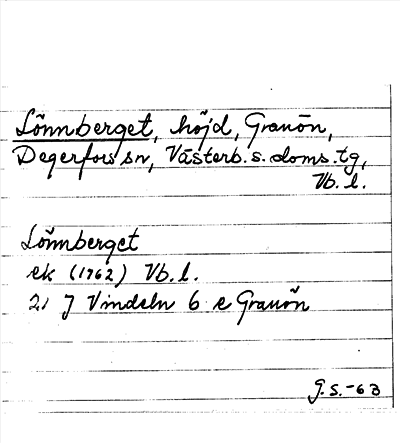 Lönnberget, höjd, Granön,
Degerfors sn, Västerb. s. doms. tg,
Vb. l.
Lönnberget
ek (1962) Vb. l.
21 J Vindeln 6 e Granön
G.S. -63